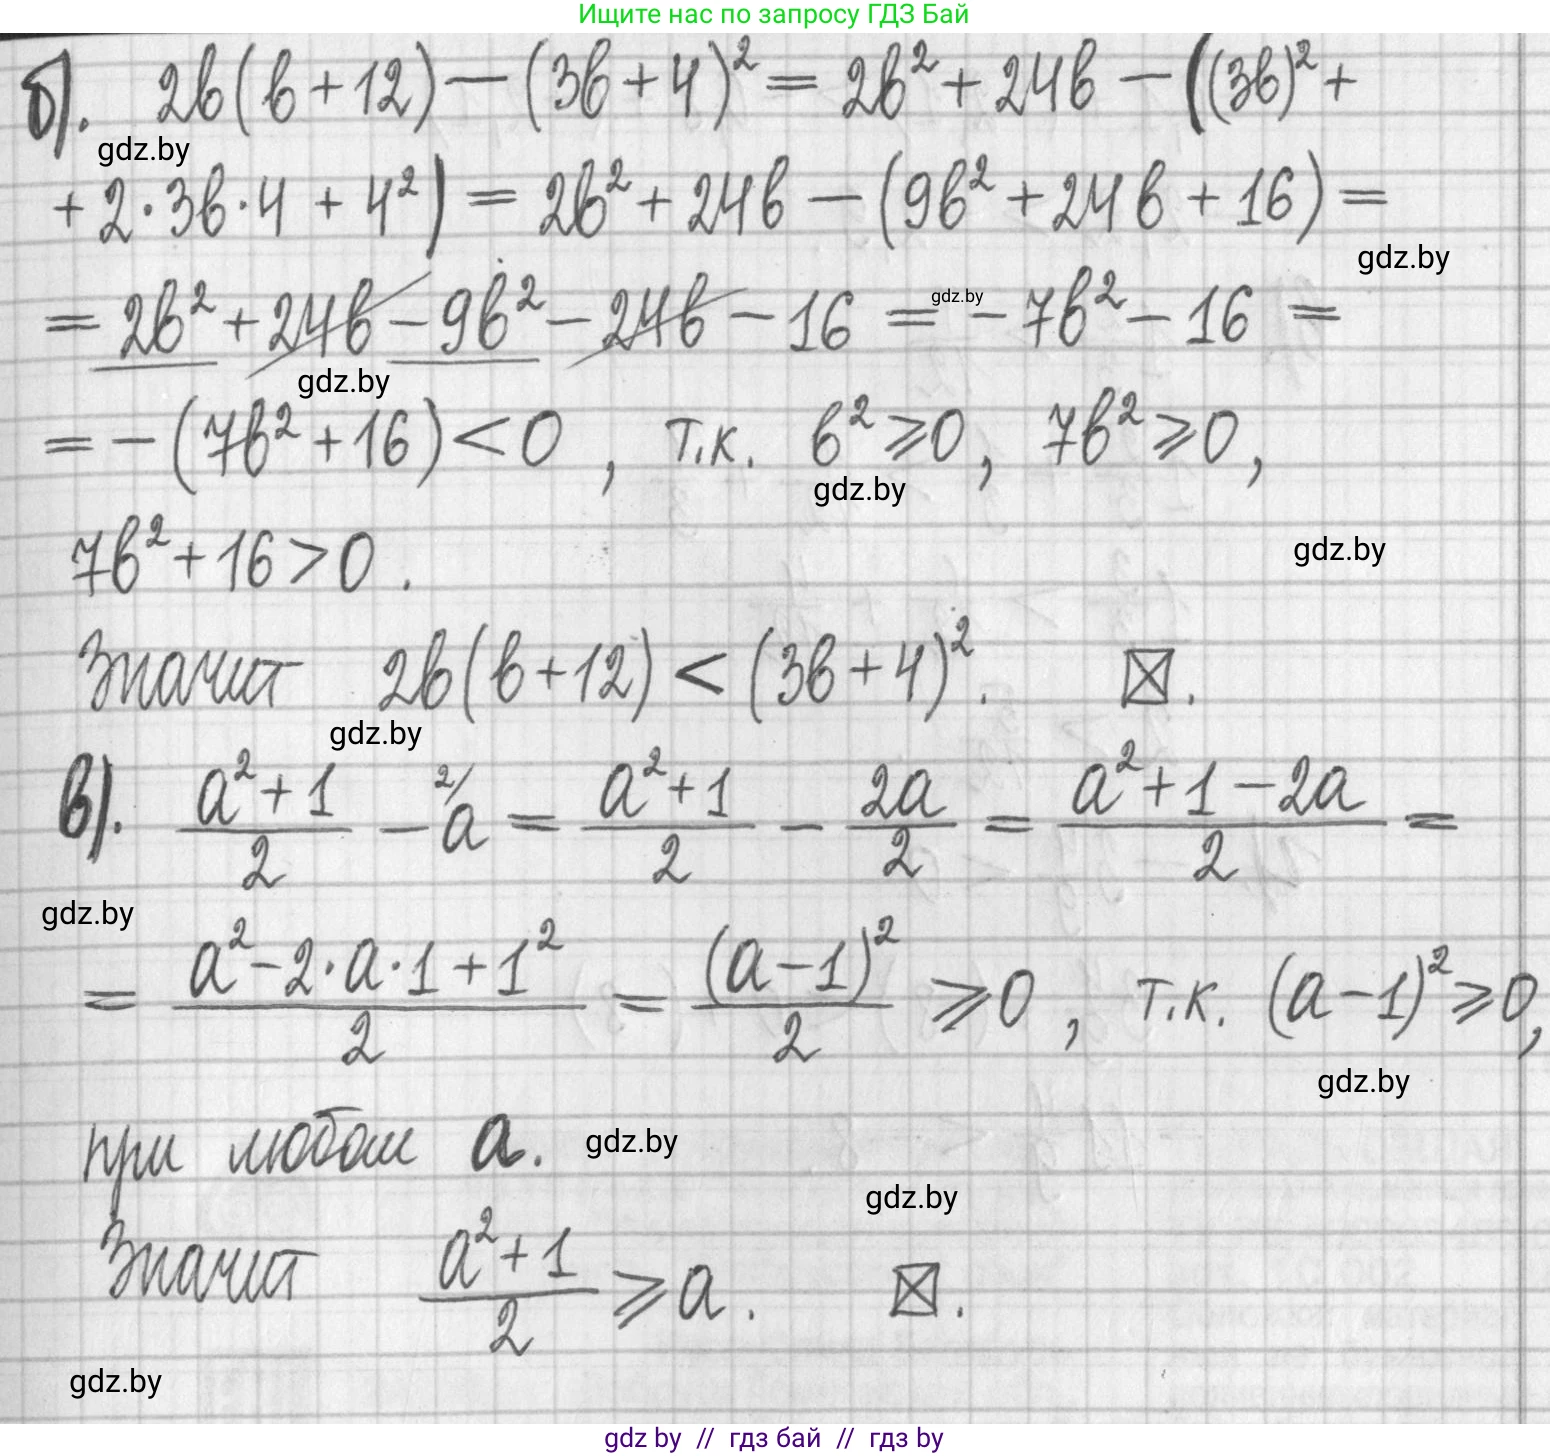 Ищите нас по запросу ГДЗ Бай
б). 2b(b+12)−(3b+4)² = 2b²+24b−((3b)²+
gdz.by
+2·3b·4+4²) = 2b²+24b−(9b²+24b+16) =
gdz.by
= 2b²+24b−9b²−24b−16 = −7b²−16 =
gdz.by
gdz.by
= −(7b²+16)<0, т.к. b²⩾0, 7b²⩾0,
gdz.by
7b²+16>0.
gdz.by
Значит 2b(b+12)<(3b+4)². ⊠.
gdz.by
в). (a²+1)/2 − ²⁄a = (a²+1)/2 − 2a/2 = (a²+1−2a)/2 =
gdz.by
= (a²−2·a·1+1²)/2 = (a−1)²/2 ⩾0, т.к. (a−1)²⩾0,
gdz.by
при любом a.
gdz.by
gdz.by
Значит (a²+1)/2 ⩾ a. ⊠.
gdz.by
gdz by // гдз бай // гдз by